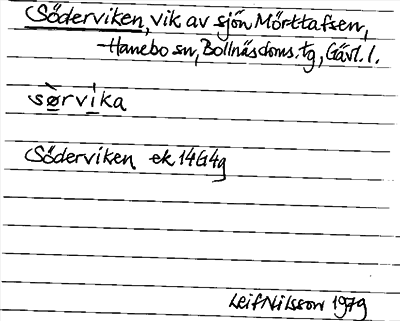 Söderviken, vik av sjön Mörttafsen,
Hanebo sn, Bollnäs doms. tg, Gävl. l.
sø̀rvi̇ka
Söderviken ek 14G4g
Leif Nilsson 1979